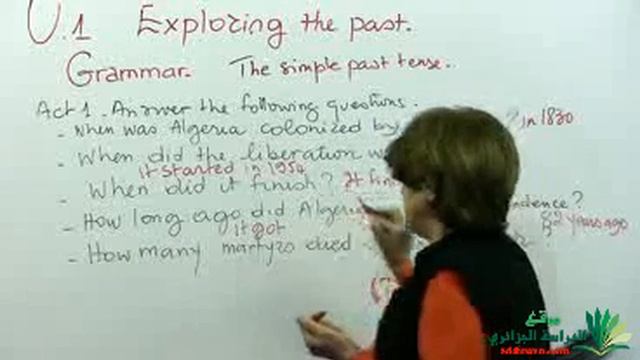 U.1 Exploring the past.
Grammar. The simple past tense.
Act 1. Answer the following questions.
- When was Algeria colonized by ? in 1830
- When did the liberation
it started in 1954
- When did it finish? It fin
- How long ago did Algeria dence?
it got years ago
- How many martyrs died
موقع
الدراسة الجزائري